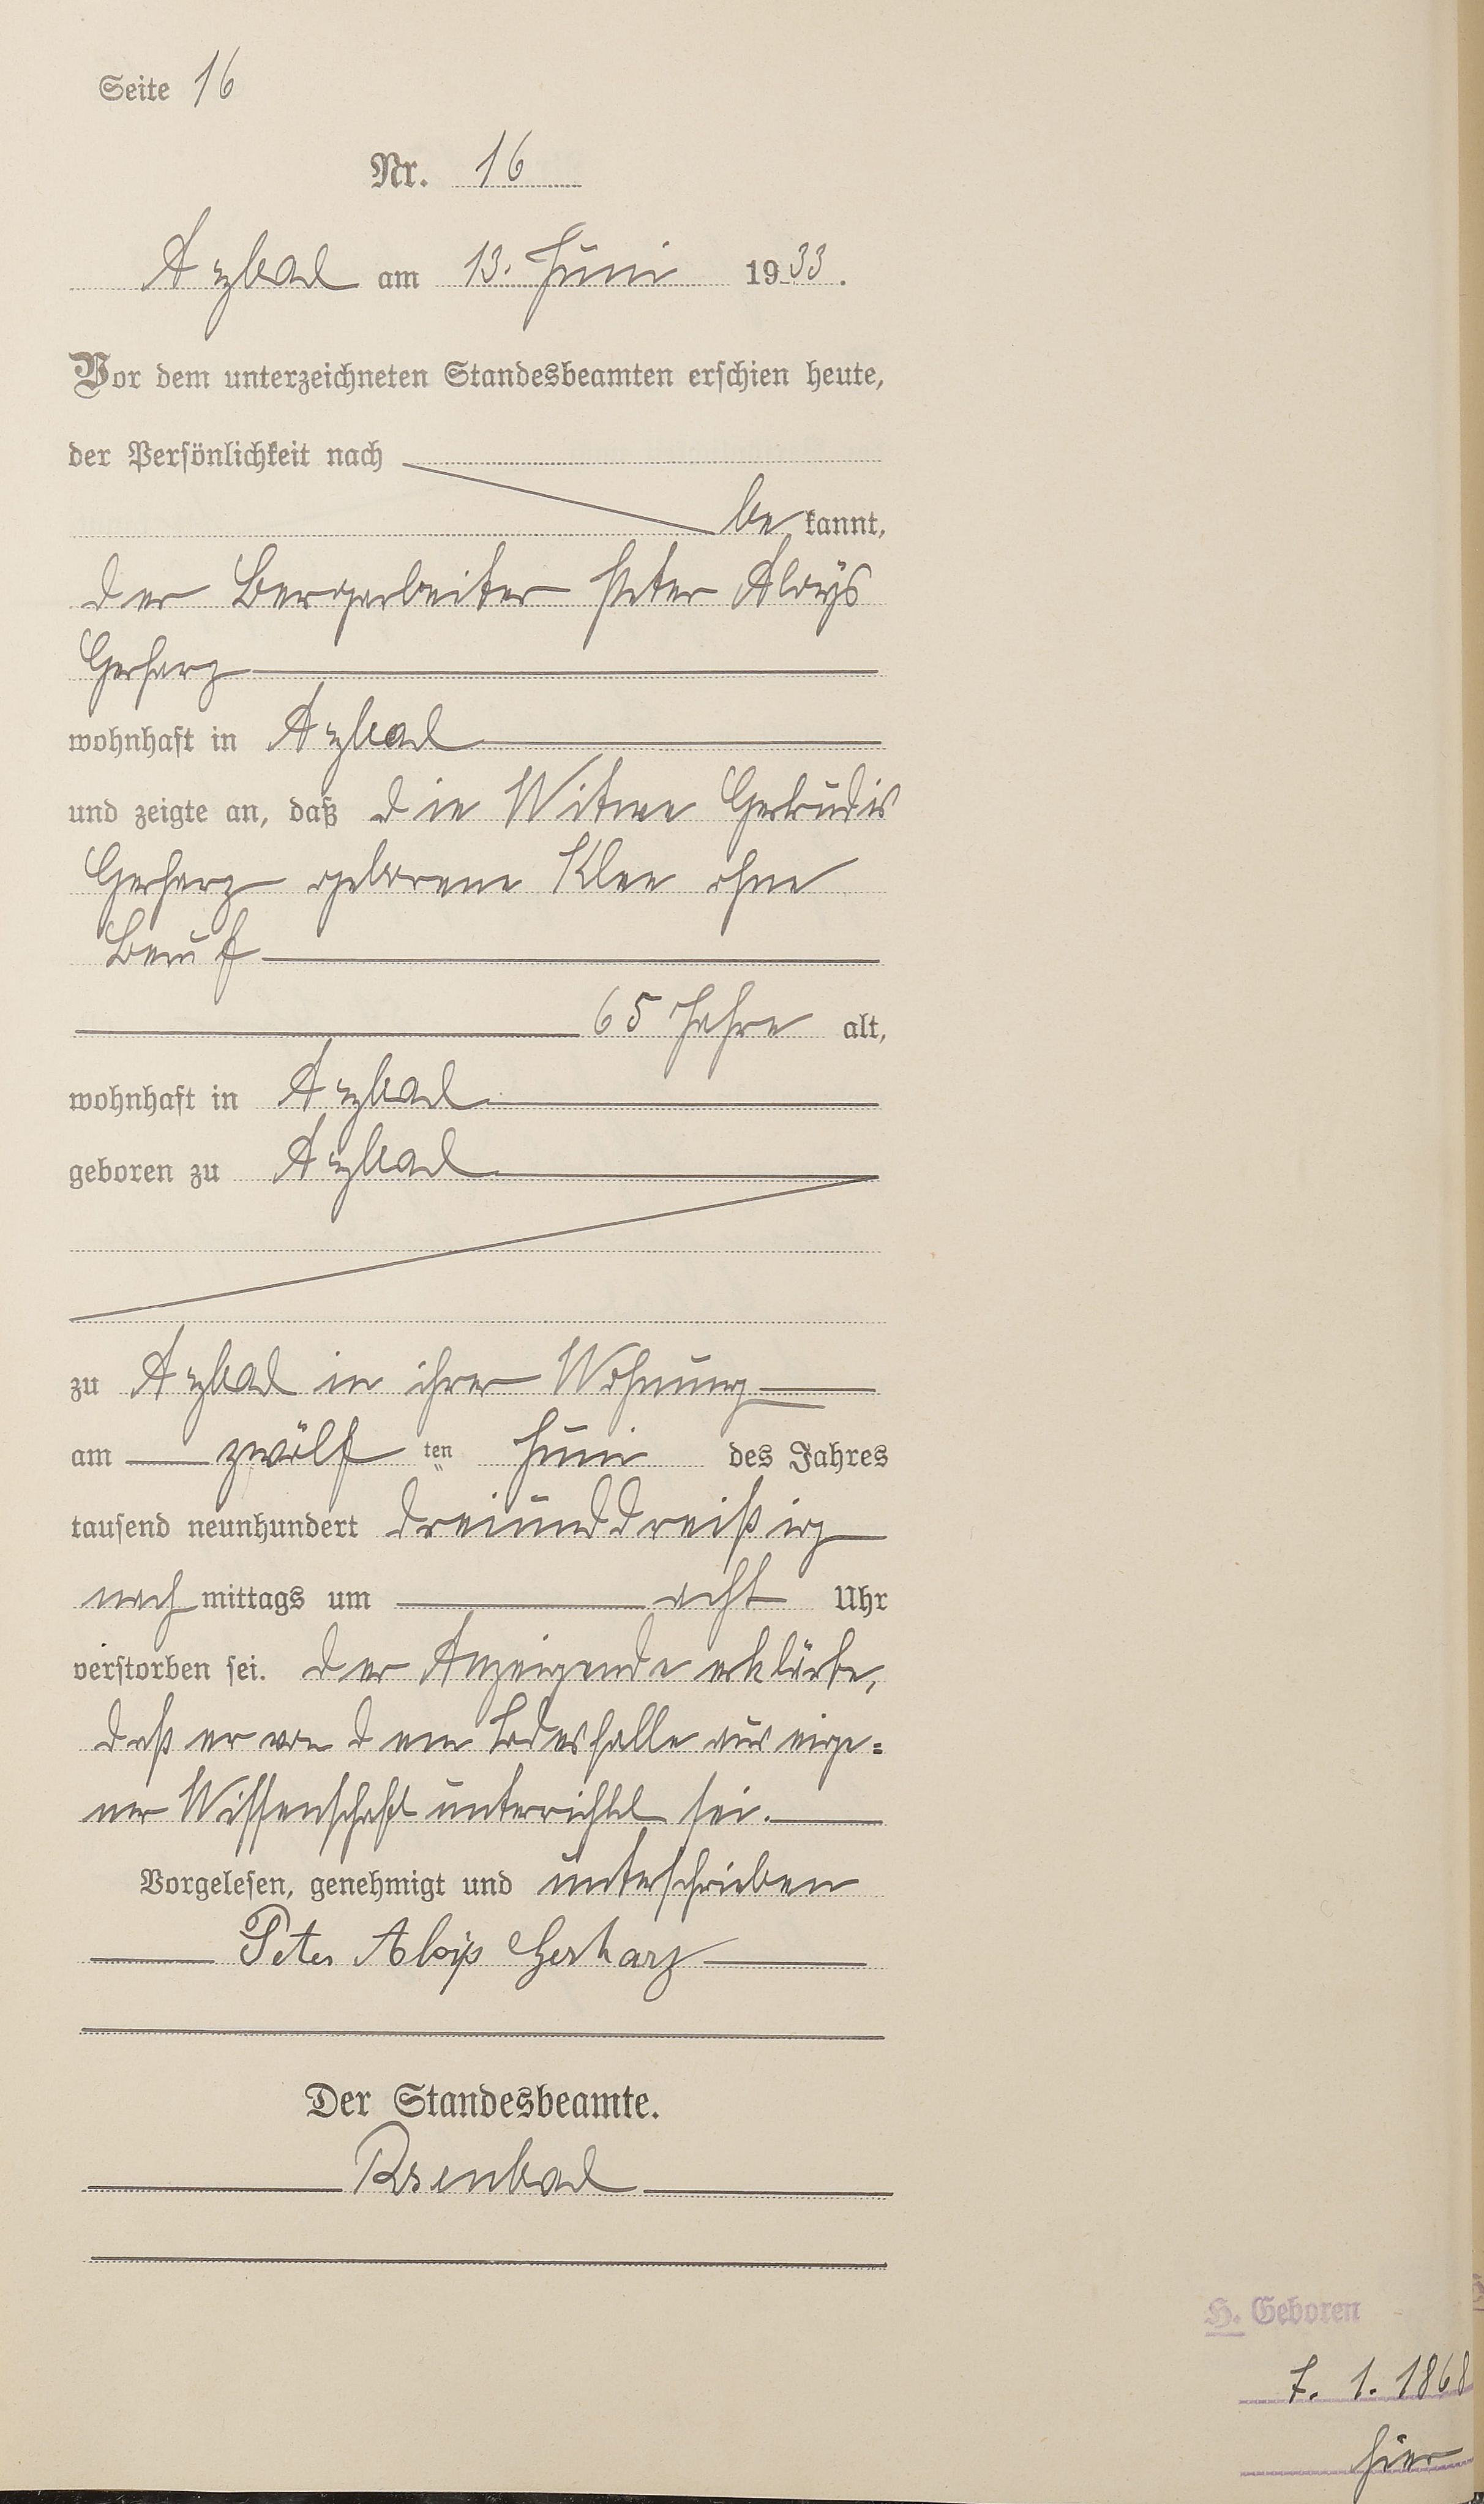 Seite 16
Nr. 16
Arzbach am 13. Juni 1933.
Vor dem unterzeichneten Standesbeamten erschien heute,
der Persönlichkeit nach
be kannt,
der Bergarbeiter Peter Aloys
Gerharz
wohnhaft in Arzbach
und zeigte an, daß die Witwe Gertrudis
Gerharz geborene Klee ohne
Beruf
65 Jahre alt,
wohnhaft in Arzbach
geboren zu Arzbach
zu Arzbach in ihrer Wohnung
am zwölf ten Juni des Jahres
tausend neunhundert dreiunddreißig
nach mittags um acht Uhr
verstorben sei. Der Anzeigende erklärte,
daß er von dem Todesfalle aus eige=
ner Wissenschaft unterrichtet sei.
Vorgelesen, genehmigt und unterschrieben
Peter Aloys Gerharz
Der Standesbeamte.
H. Geboren
7. 1. 1868
hier